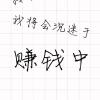 我将会沉迷于
赚钱中